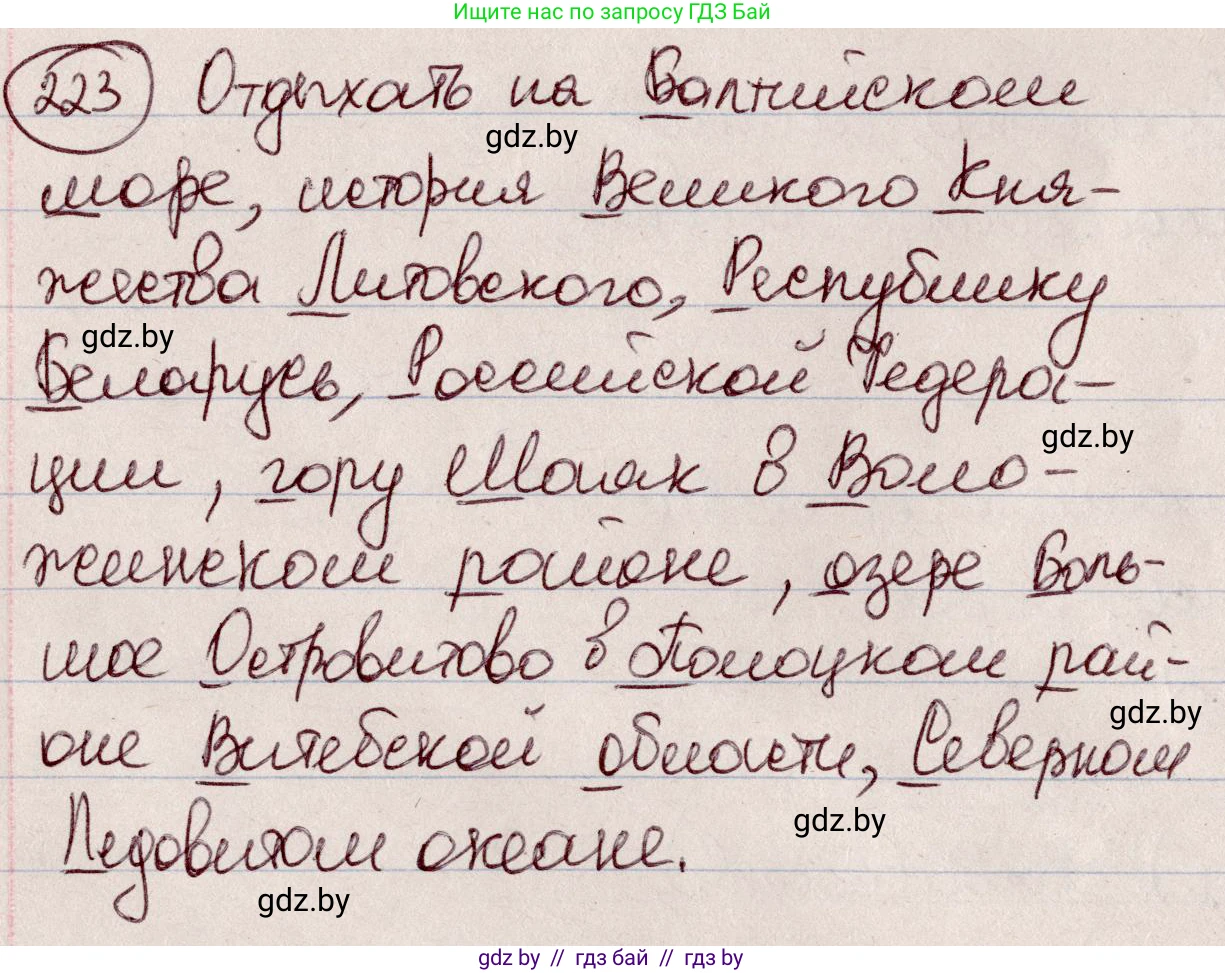 Ищите нас по запросу ГДЗ Бай
223 Отдыхать на Балтийском
gdz.by
море, история Великого Кня-
жества Литовского, Республику
gdz.by
Беларусь, Российской Федера-
gdz.by
ции, гору Маяк в Воло-
жинском районе, озере Боль-
шое Островитово в Полоцком рай-
gdz.by
оне Витебской области, Северном
gdz.by
Ледовитом океане.
gdz.by
gdz by // гдз бай // гдз by